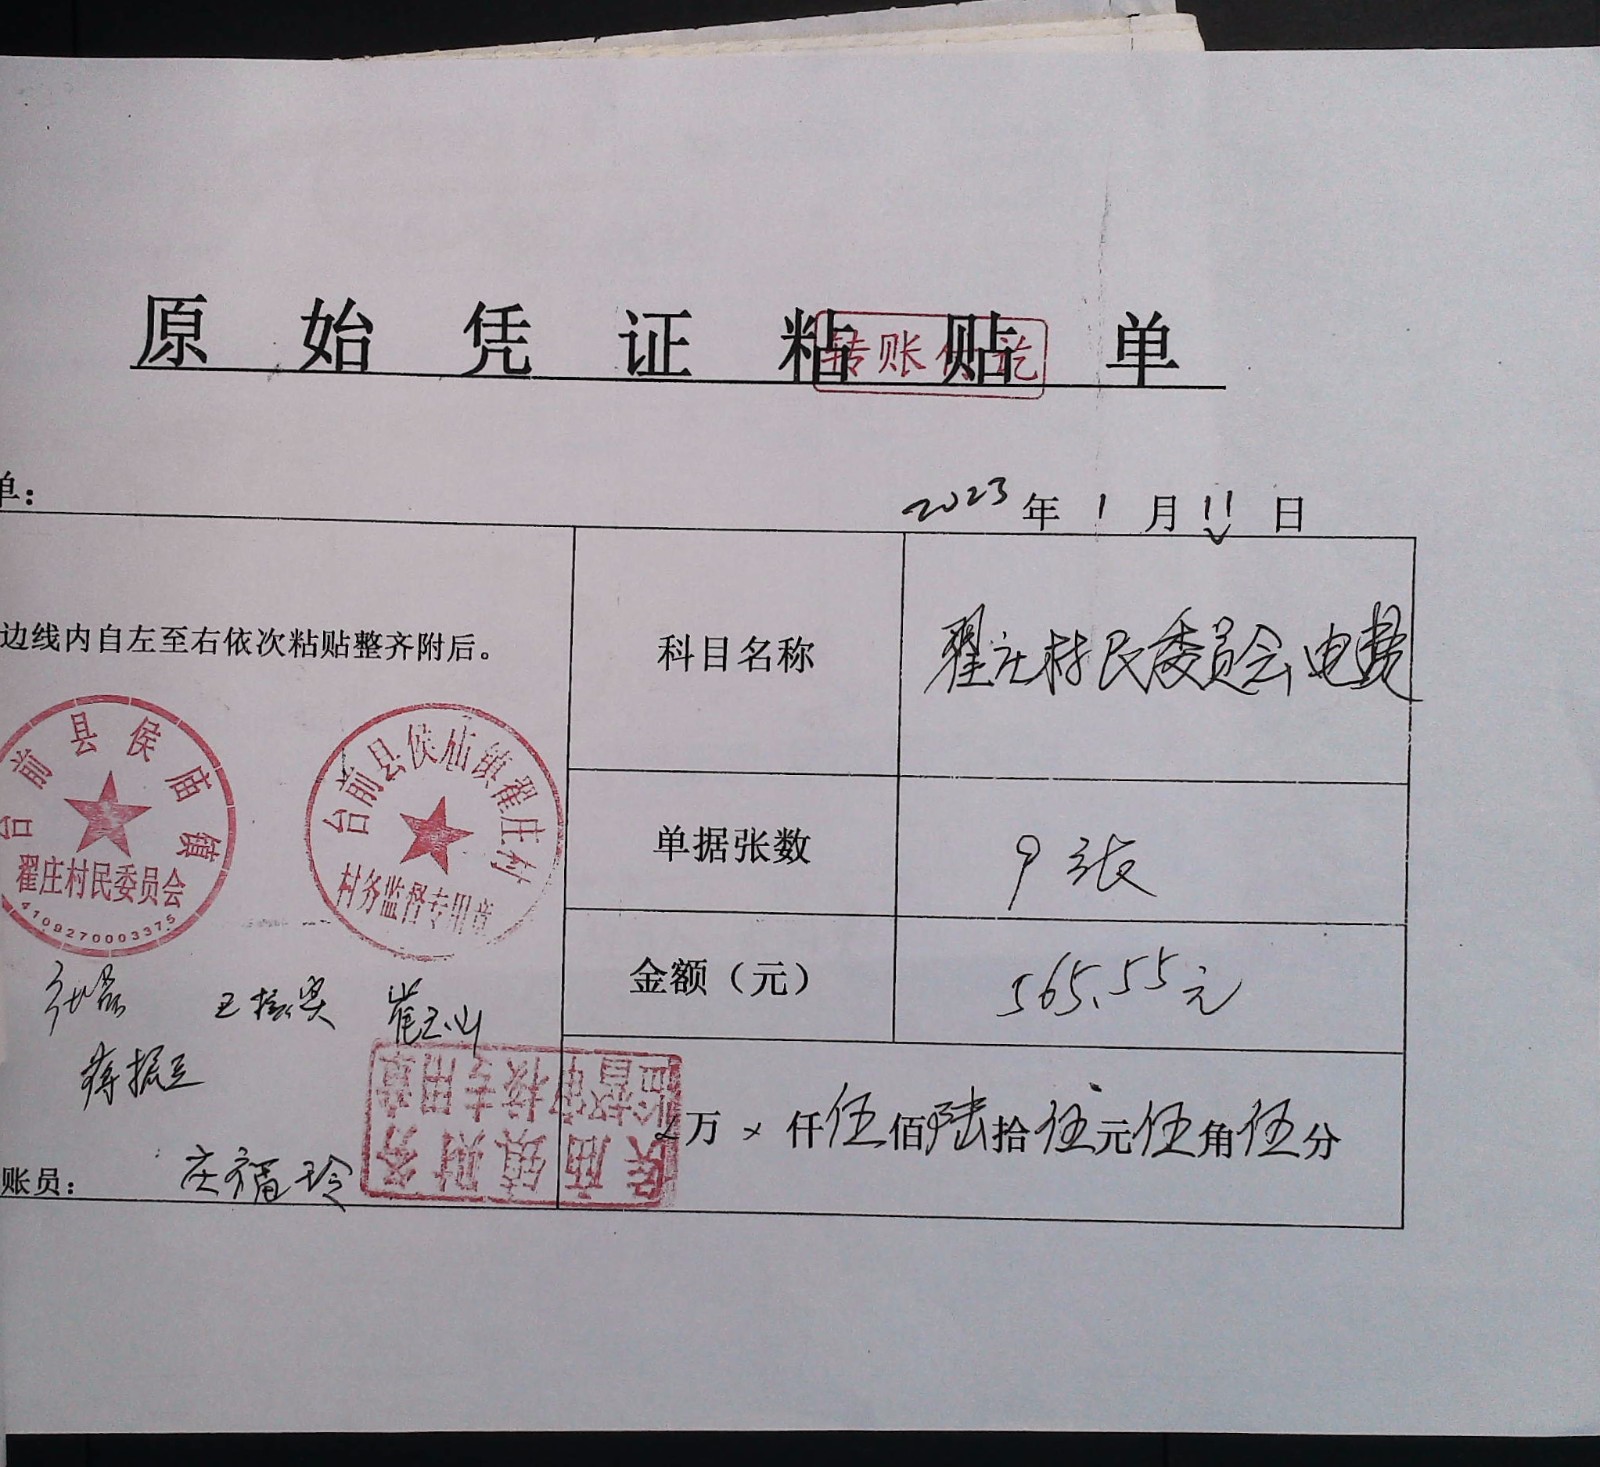 原始凭证粘贴单
转账付讫
单：
2023年1月11日
边线内自左至右依次粘贴整齐附后。
科目名称
翟庄村民委员会电费
台前县侯庙镇
翟庄村民委员会
4109270003375
台前县侯庙镇翟庄村
村务监督专用章
单据张数
9张
金额（元）
565.55元
崔玉山
蒋振立
侯庙镇财务
监督审核专用章
万×仟伍佰陆拾伍元伍角伍分
账员：
庄福玲